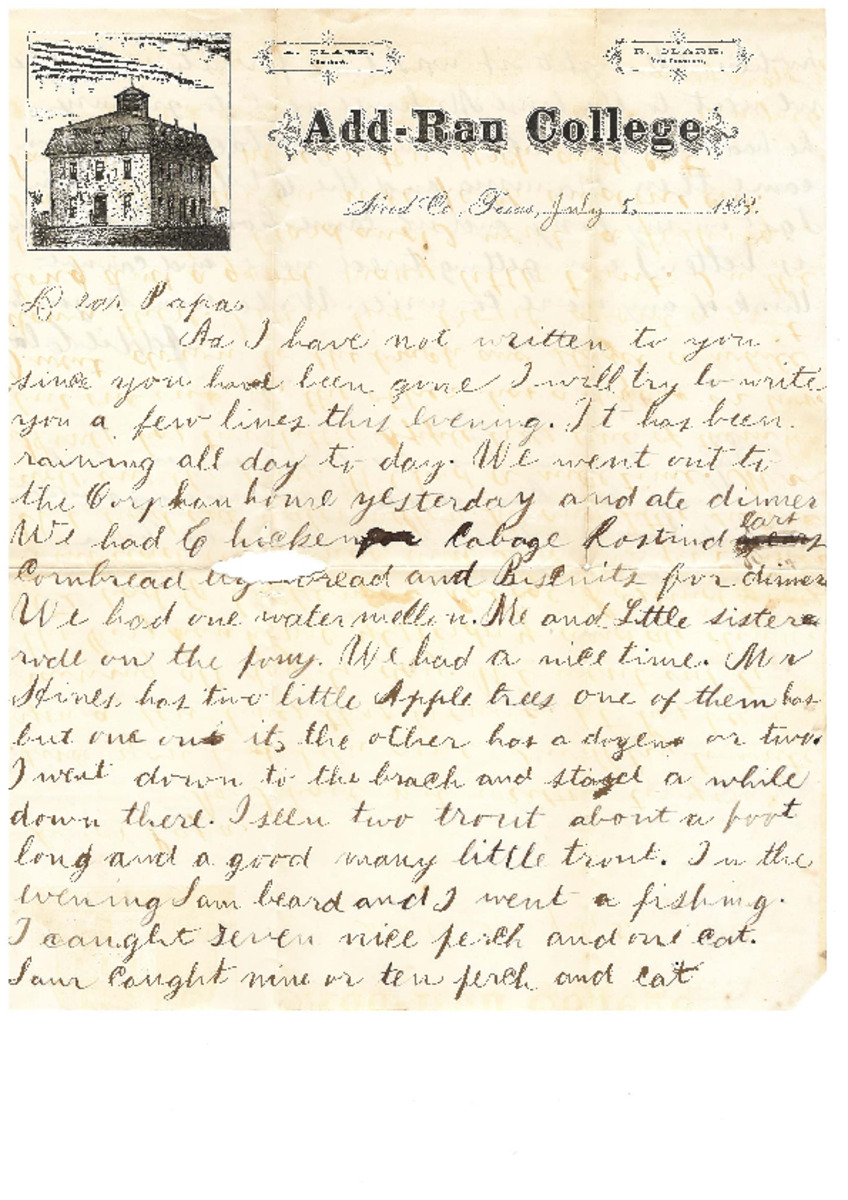 A. CLARK,
President.
R. CLARK,
Vice President.
Add-Ran College
Hood Co, Texas, July 5, 188
Dear Papa
As I have not written to you
since you have been gone I will try to write
you a few lines this evening. It has been
raining all day to day. We went out to
the Orphan home yesterday and ate dinner
We had Chicken Cabage Rostind ears
Cornbread bread and Biscuits for dinner
We had one water mellon. Me and Little sister
rode on the pony. We had a nice time. Mr
Hines has two little Apple trees one of them has
but one on it, the other has a dozen or two.
I went down to the brach and stayed a while
down there. I seen two trout about a foot
long and a good many little trout. In the
evening Sam beard and I went a fishing.
I caught seven nice perch and one cat.
Sam caught nine or ten perch and cat